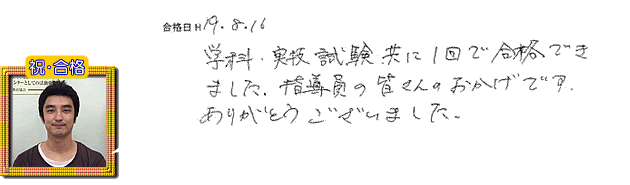 合格日 H19.8.16
学科・実技試験共に1回で合格でき
ました。指導員の皆さんのおかげです。
ありがとうございました。
祝・合格